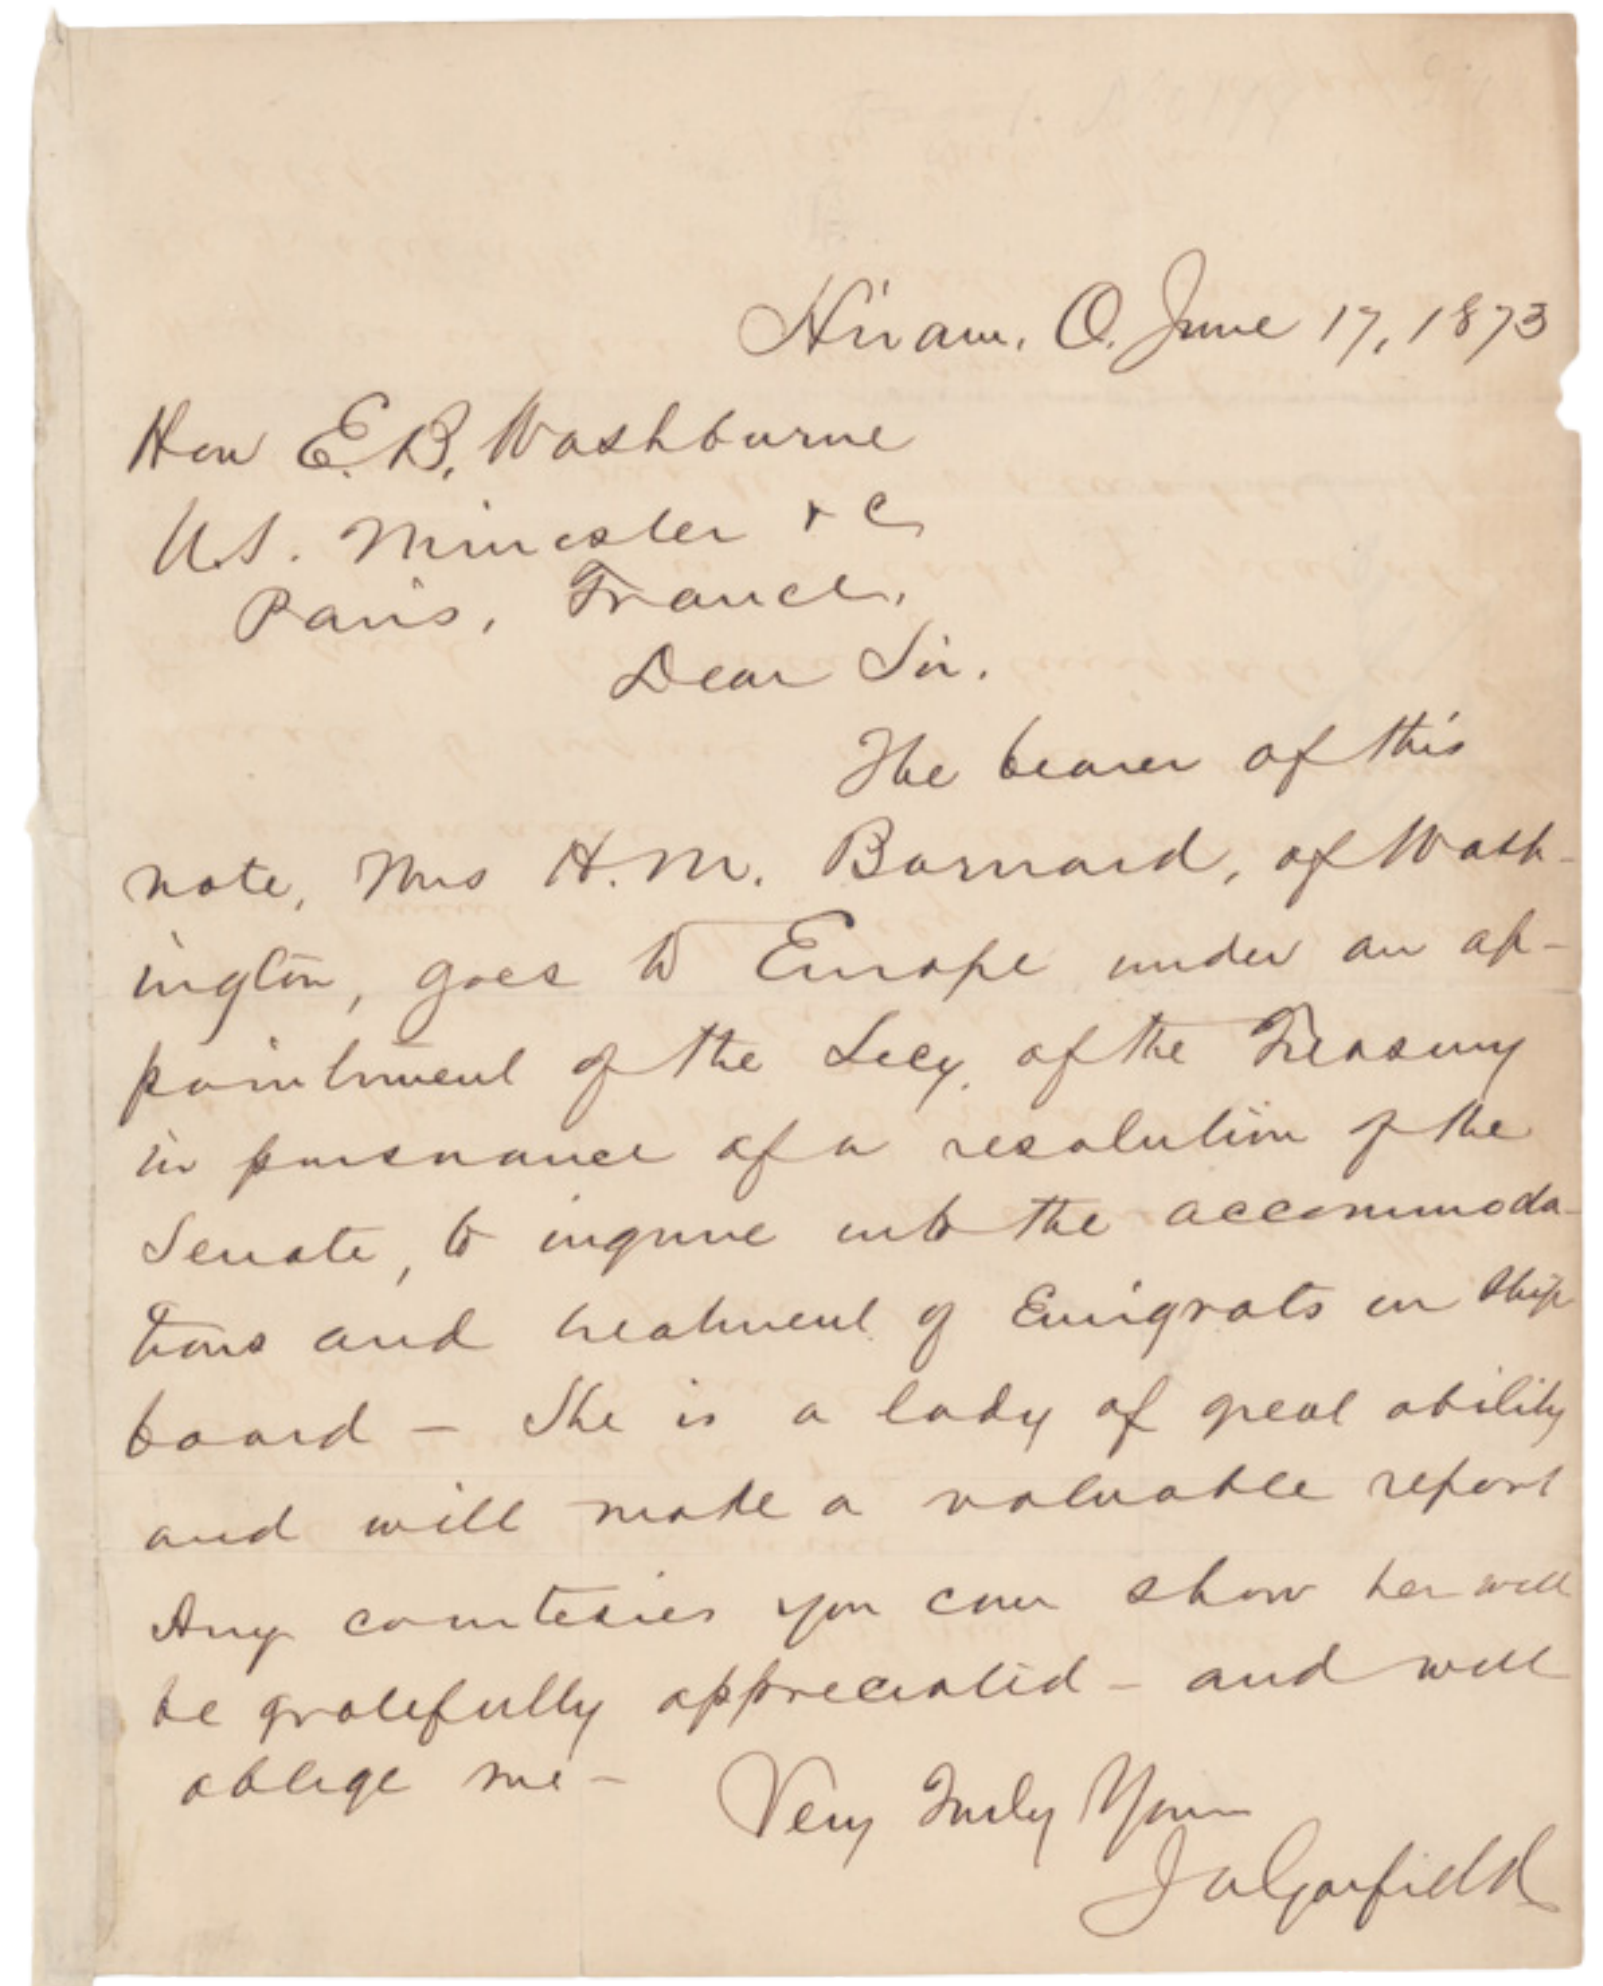 Hiram, O. June 17, 1873
Hon E.B. Washburne
U.S. Minister & C
Paris, France.
Dear Sir.
The bearer of this
note, Mrs H. M. Barnard, of Wash-
ington, goes to Europe under an ap-
pointment of the Secy. of the Treasury
in pursuance of a resolution of the
Senate, to inquire into the accommoda-
tions and treatment of Emigrats on ship
board – She is a lady of great ability
and will make a valuable report
Any courtesies you can show her will
be gratefully appreciated – and will
oblige me –
Very Truly Yours
J A Garfield